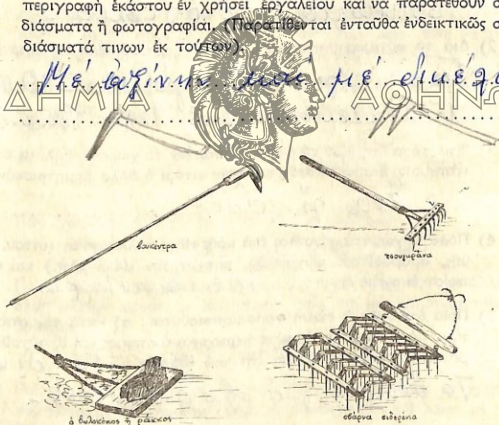 περιγραφὴ ἑκάστου ἐν χρήσει ἐργαλείου καὶ νὰ παρατεθοῦν σ
διάσματα ἢ φωτογραφίαι. (Παρατίθενται ἐνταῦθα ἐνδεικτικῶς σ
διάσματά τινων ἐκ τούτων).
Μὲ ἀξίνην καὶ μὲ δικέλλ
ΔΗΜΙΑ ΑΘΗΝΩ
βουκέντρα
τσουγκράνα
ὁ βωλοκόπος ἢ
σβάρνα σιδερένια